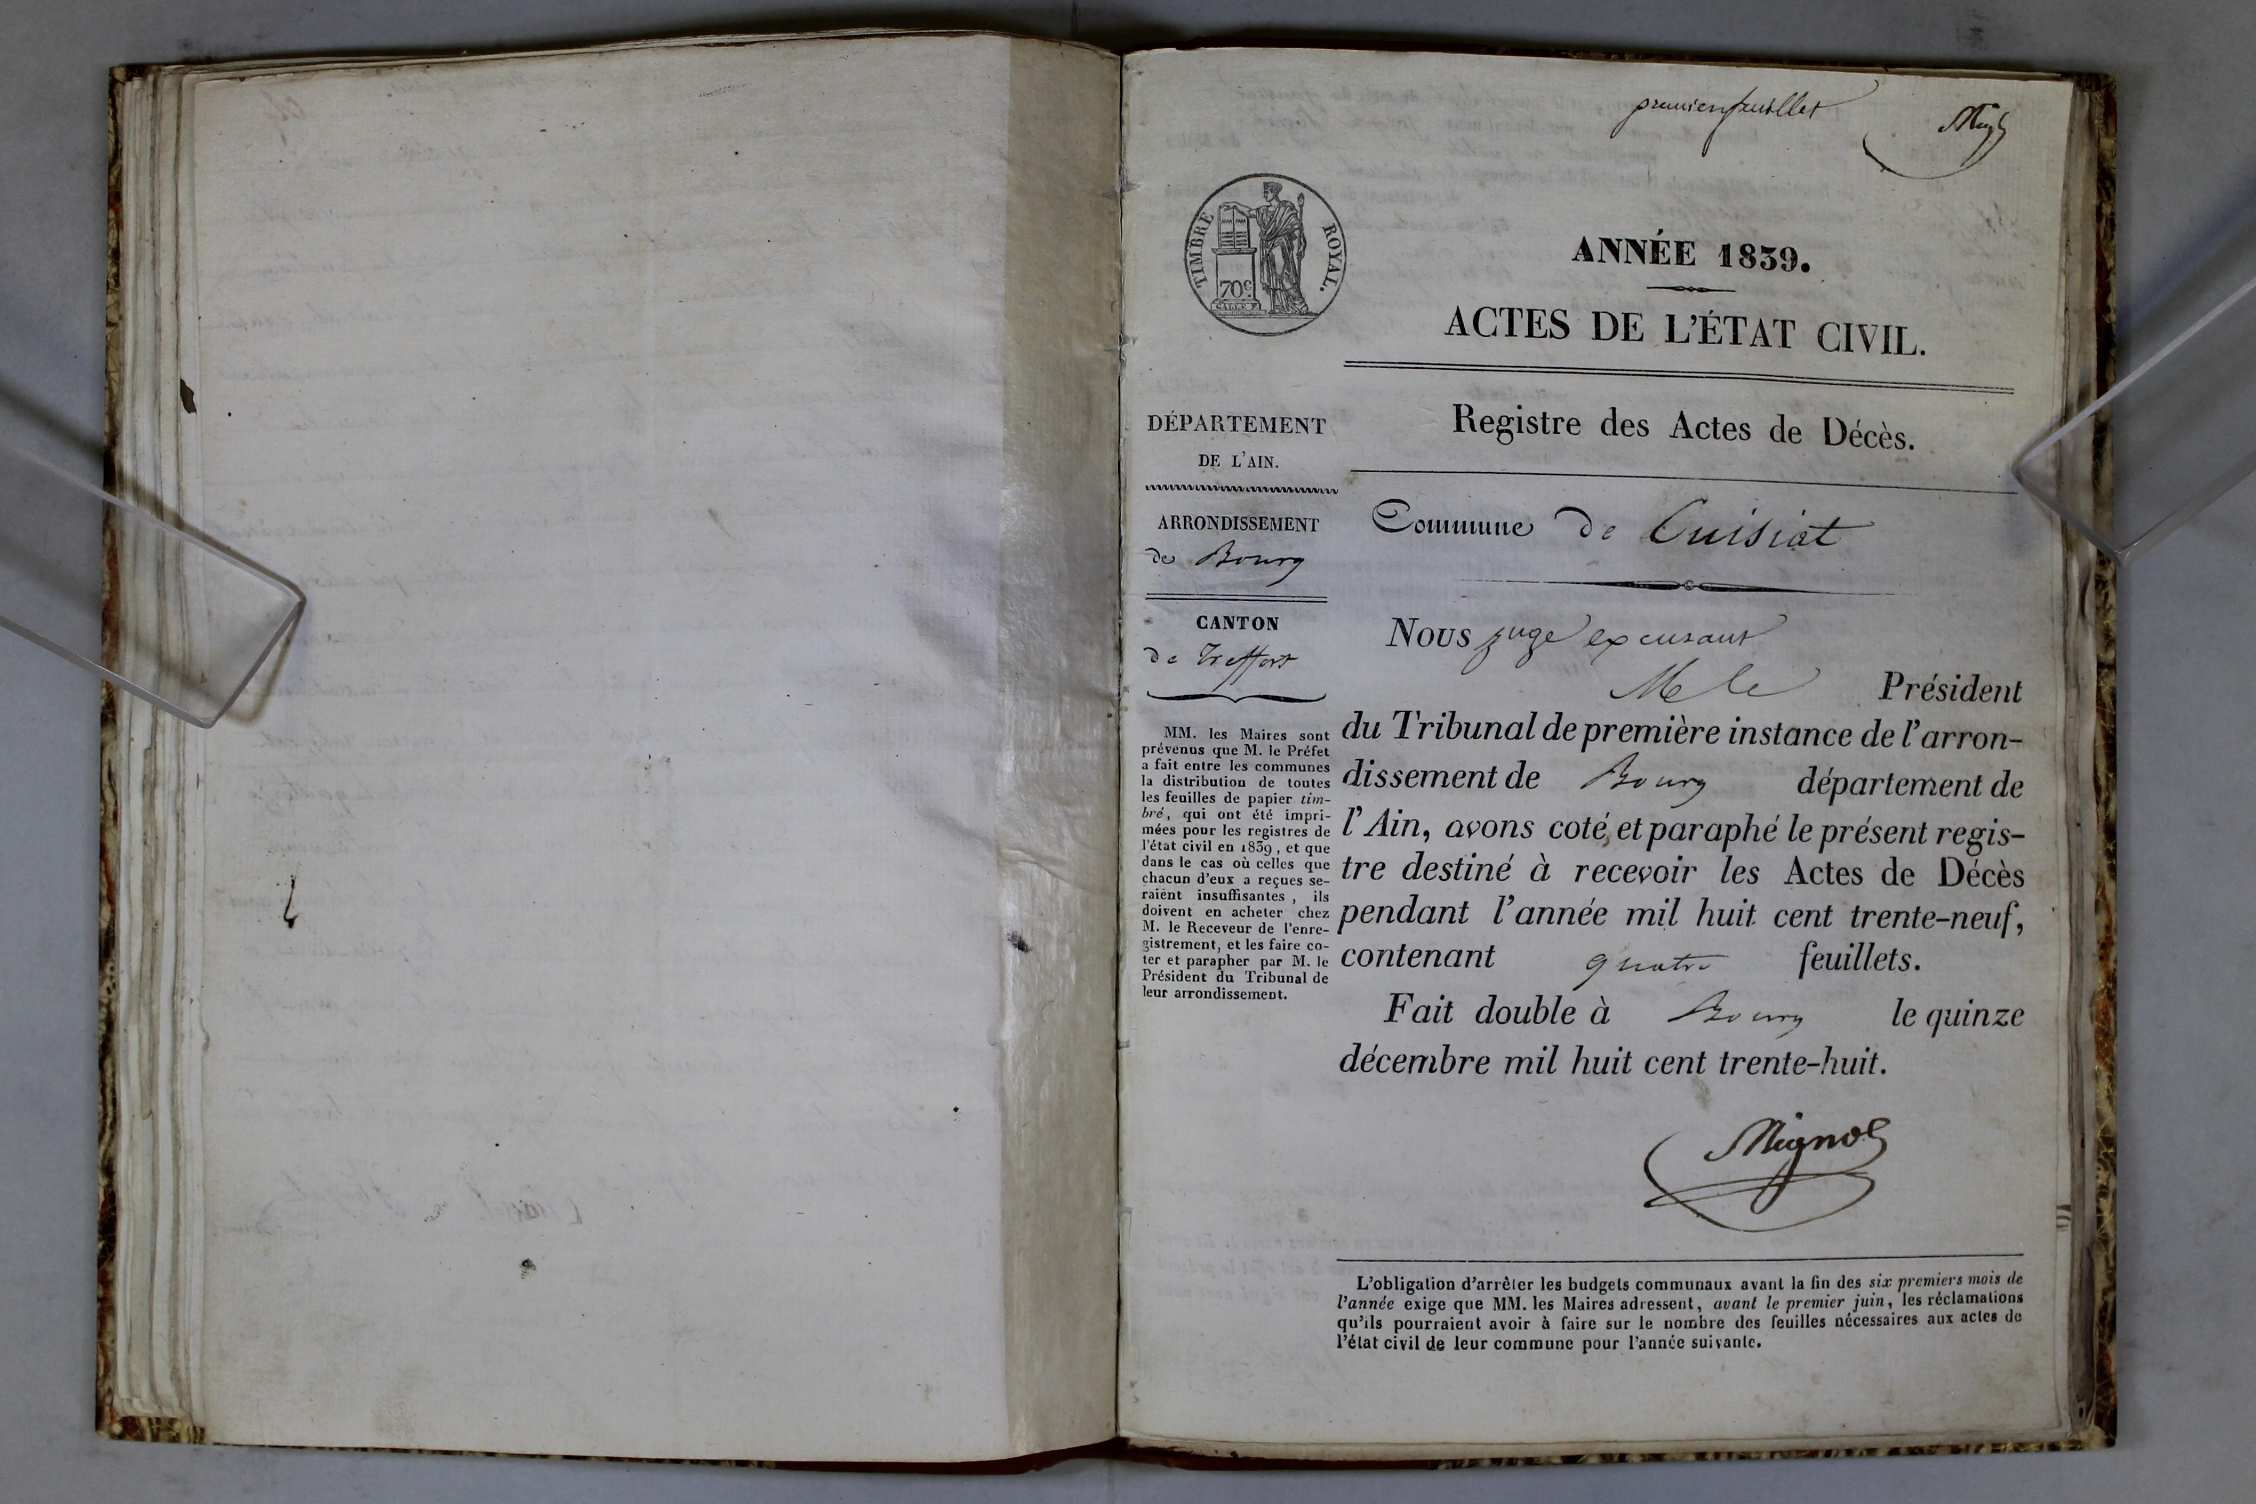 premier feuillet
TIMBRE ROYAL.
70c
ANNÉE 1839.
ACTES DE L'ÉTAT CIVIL.
Registre des Actes de Décès.
DÉPARTEMENT
DE L'AIN.
ARRONDISSEMENT
de Bourg
CANTON
de Treffort
MM. les Maires sont
prévenus que M. le Préfet
a fait entre les communes
la distribution de toutes
les feuilles de papier tim-
bré, qui ont été impri-
mées pour les registres de
l'état civil en 1839, et que
dans le cas où celles que
chacun d'eux a reçues se-
raient insuffisantes, ils
doivent en acheter chez
M. le Receveur de l'enre-
gistrement, et les faire co-
ter et parapher par M. le
Président du Tribunal de
leur arrondissement.
Commune de Cuisiat
Nous juge excusant
M le Président
du Tribunal de première instance de l'arron-
dissement de Bourg département de
l'Ain, avons coté et paraphé le présent regis-
tre destiné à recevoir les Actes de Décès
pendant l'année mil huit cent trente-neuf,
contenant quatre feuillets.
Fait double à Bourg le quinze
décembre mil huit cent trente-huit.
L'obligation d'arrêter les budgets communaux avant la fin des six premiers mois de
l'année exige que MM. les Maires adressent, avant le premier juin, les réclamations
qu'ils pourraient avoir à faire sur le nombre des feuilles nécessaires aux actes de
l'état civil de leur commune pour l'année suivante.